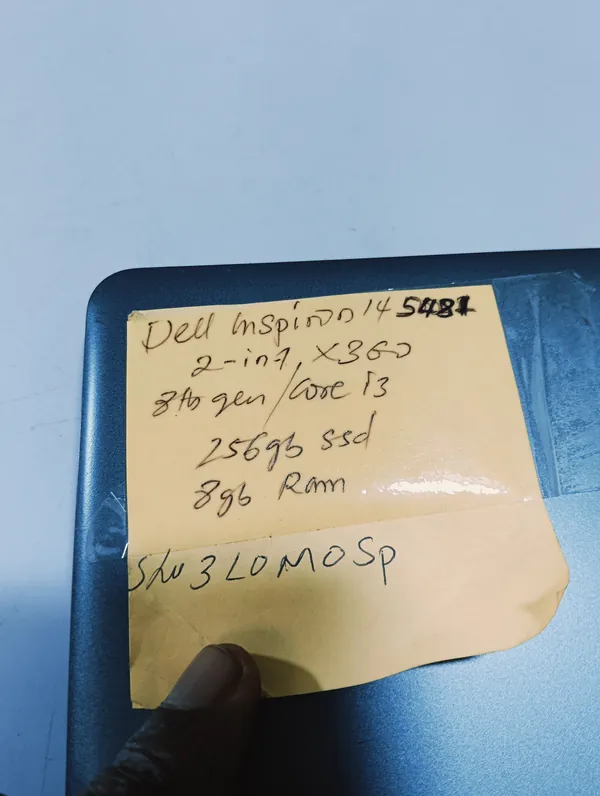 Dell Inspiron 14 5481
2-in1, X360
8th gen/Core i3
256gb ssd
8gb Ram
3L0M0Sp